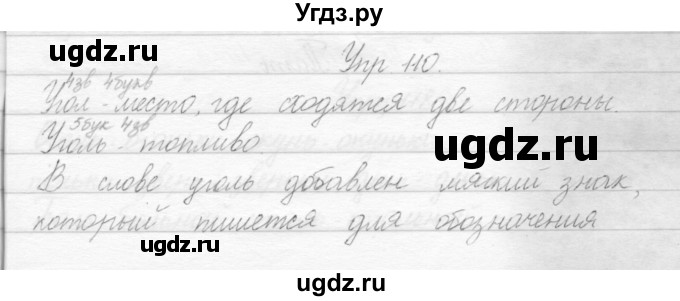 Угдз.ру
ugdz.ru
ugdz.ru
Упр 110.
4зв 4букв
Угол - место, где сходятся две стороны.
5бук 4зв
Уголь - топливо
ugdz.ru
В слове уголь добавлен мягкий знак,
который пишется для обозначения
ugdz.ru
ugdz.ru
ugdz.ru